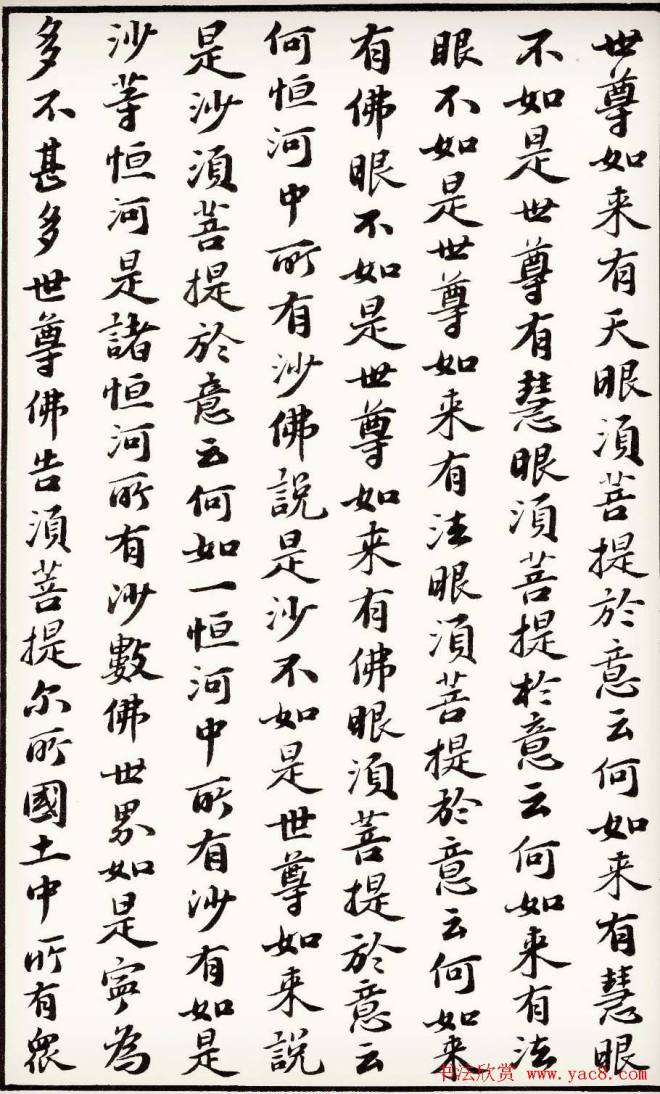 世尊如来有天眼須菩提於意云何如来有慧眼
不如是世尊有慧眼須菩提於意云何如来有法
眼不如是世尊如来有法眼須菩提於意云何如来
有佛眼不如是世尊如来有佛眼須菩提於意云
何恒河中所有沙佛説是沙不如是世尊如来説
是沙須菩提於意云何如一恒河中所有沙有如是
沙等恒河是諸恒河所有沙數佛世界如是寧為
多不甚多世尊佛告須菩提尔所國土中所有眾
书法欣赏 www.yac8.com